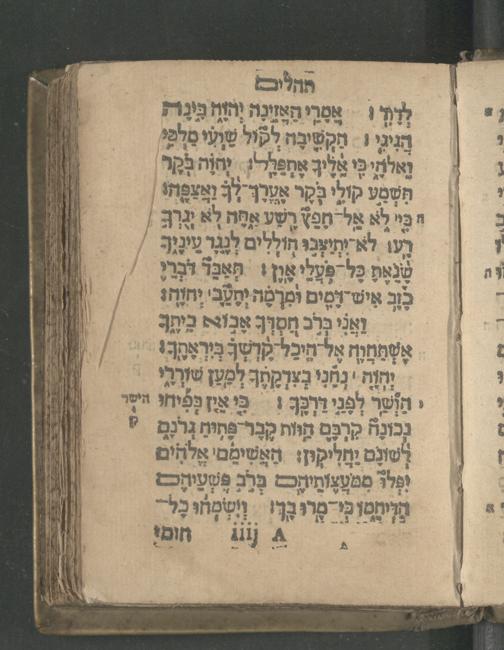 תהלים
לְדָוִד׃ אֲמָרַי הַאֲזִינָה יְהֹוָה בִּינָה
הֲגִיגִי׃ הַקְשִׁיבָה לְקוֹל שַׁוְעִי מַלְכִּי
וֵאלֹהָי כִּי אֵלֶיךָ אֶתְפַּלָּל׃ יְהֹוָה בֹּקֶר
תִּשְׁמַע קוֹלִי בֹּקֶר אֶעֱרָךְ־לְךָ וַאֲצַפֶּה׃
ה כִּי לֹא אֵל־חָפֵץ רֶשַׁע אָתָּה לֹא יְגֻרְךָ
רָע׃ לֹא־יִתְיַצְּבוּ הוֹלְלִים לְנֶגֶד עֵינֶיךָ
שָׂנֵאתָ כָּל־פֹּעֲלֵי אָוֶן׃ תְּאַבֵּד דֹּבְרֵי
כָזָב אִישׁ־דָּמִים וּמִרְמָה יְתָעֵב יְהֹוָה׃
וַאֲנִי בְּרֹב חַסְדְּךָ אָבוֹא בֵיתֶךָ
אֶשְׁתַּחֲוֶה אֶל־הֵיכַל־קָדְשְׁךָ בְּיִרְאָתֶךָ׃
יְהֹוָה נְחֵנִי בְצִדְקָתֶךָ לְמַעַן שׁוֹרְרָי
הַוְשַׁר לְפָנַי דַּרְכֶּךָ׃ כִּי אֵין בְּפִיהוּ הישר
נְכוֹנָה קִרְבָּם הַוּוֹת קֶבֶר־פָּתוּחַ גְּרֹנָם ק
לְשׁוֹנָם יַחֲלִיקוּן׃ הַאֲשִׁימֵם אֱלֹהִים
יִפְּלוּ מִמֹּעֲצוֹתֵיהֶם בְּרֹב פִּשְׁעֵיהֶם
הַדִּיחֵמוֹ כִּי־מָרוּ בָךְ׃ וְיִשְׂמְחוּ כָל־
A iiij חוסי